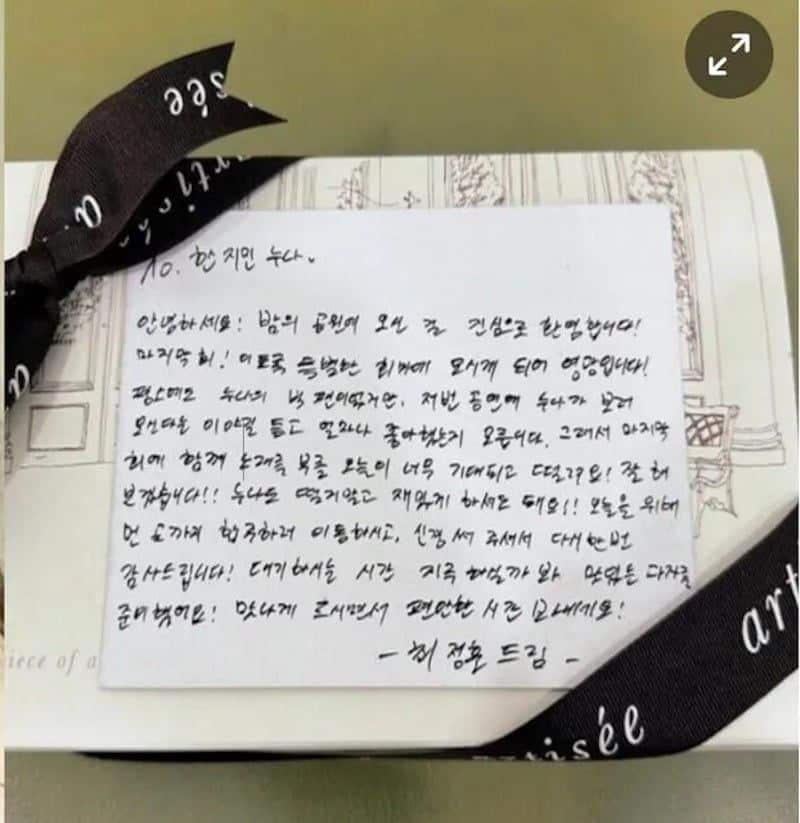 artisée
artisée
a.
To. 한지민 누나.
안녕하세요! 밤의 공원에 오신 걸 진심으로 환영합니다!
마지막회! 이토록 특별한 회차에 모시게 되어 영광입니다!
평소에도 누나의 빅 팬이었지만, 저번 공연에 누나가 보러
오신다는 이야길 듣고 얼마나 좋아했는지 모릅니다. 그래서 마지막
회에 함께 노래를 부를 오늘이 너무 기대되고 떨려요! 잘 해
보겠습니다!! 누나도 떨지말고 재밌게 하셔도 돼요!! 오늘을 위해
먼 곳까지 합주하러 이동하시고, 신경 써 주셔서 다시한번
감사드립니다! 대기하시는 시간 지루하실까봐 맛있는 다과를
준비했어요! 맛나게 드시면서 편안한 시간 보내세요!
- 최정훈 드림 -
piece of a
art
artisée